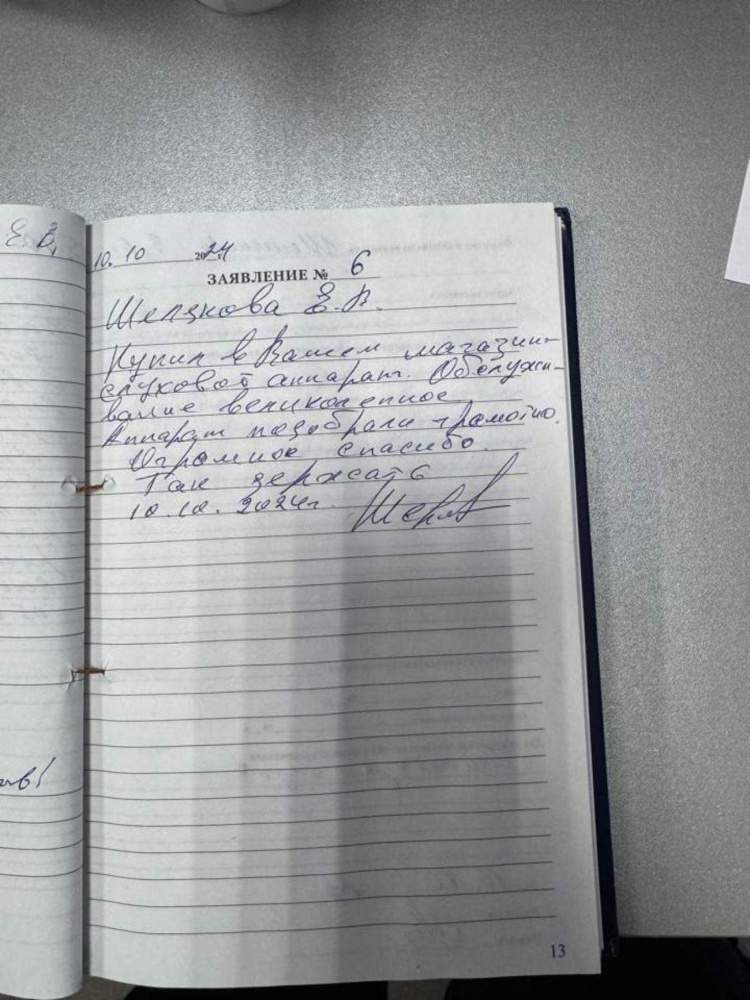 Е В,
10. 10 2024 г.
ЗАЯВЛЕНИЕ № 6
Е. В.
Купил в Вашем магазин-
слуховой аппарат. Обслужи-
вание великолепное
Аппарат подобрали грамотно.
Огромное спасибо.
Так держать
10.10.2024г.
13